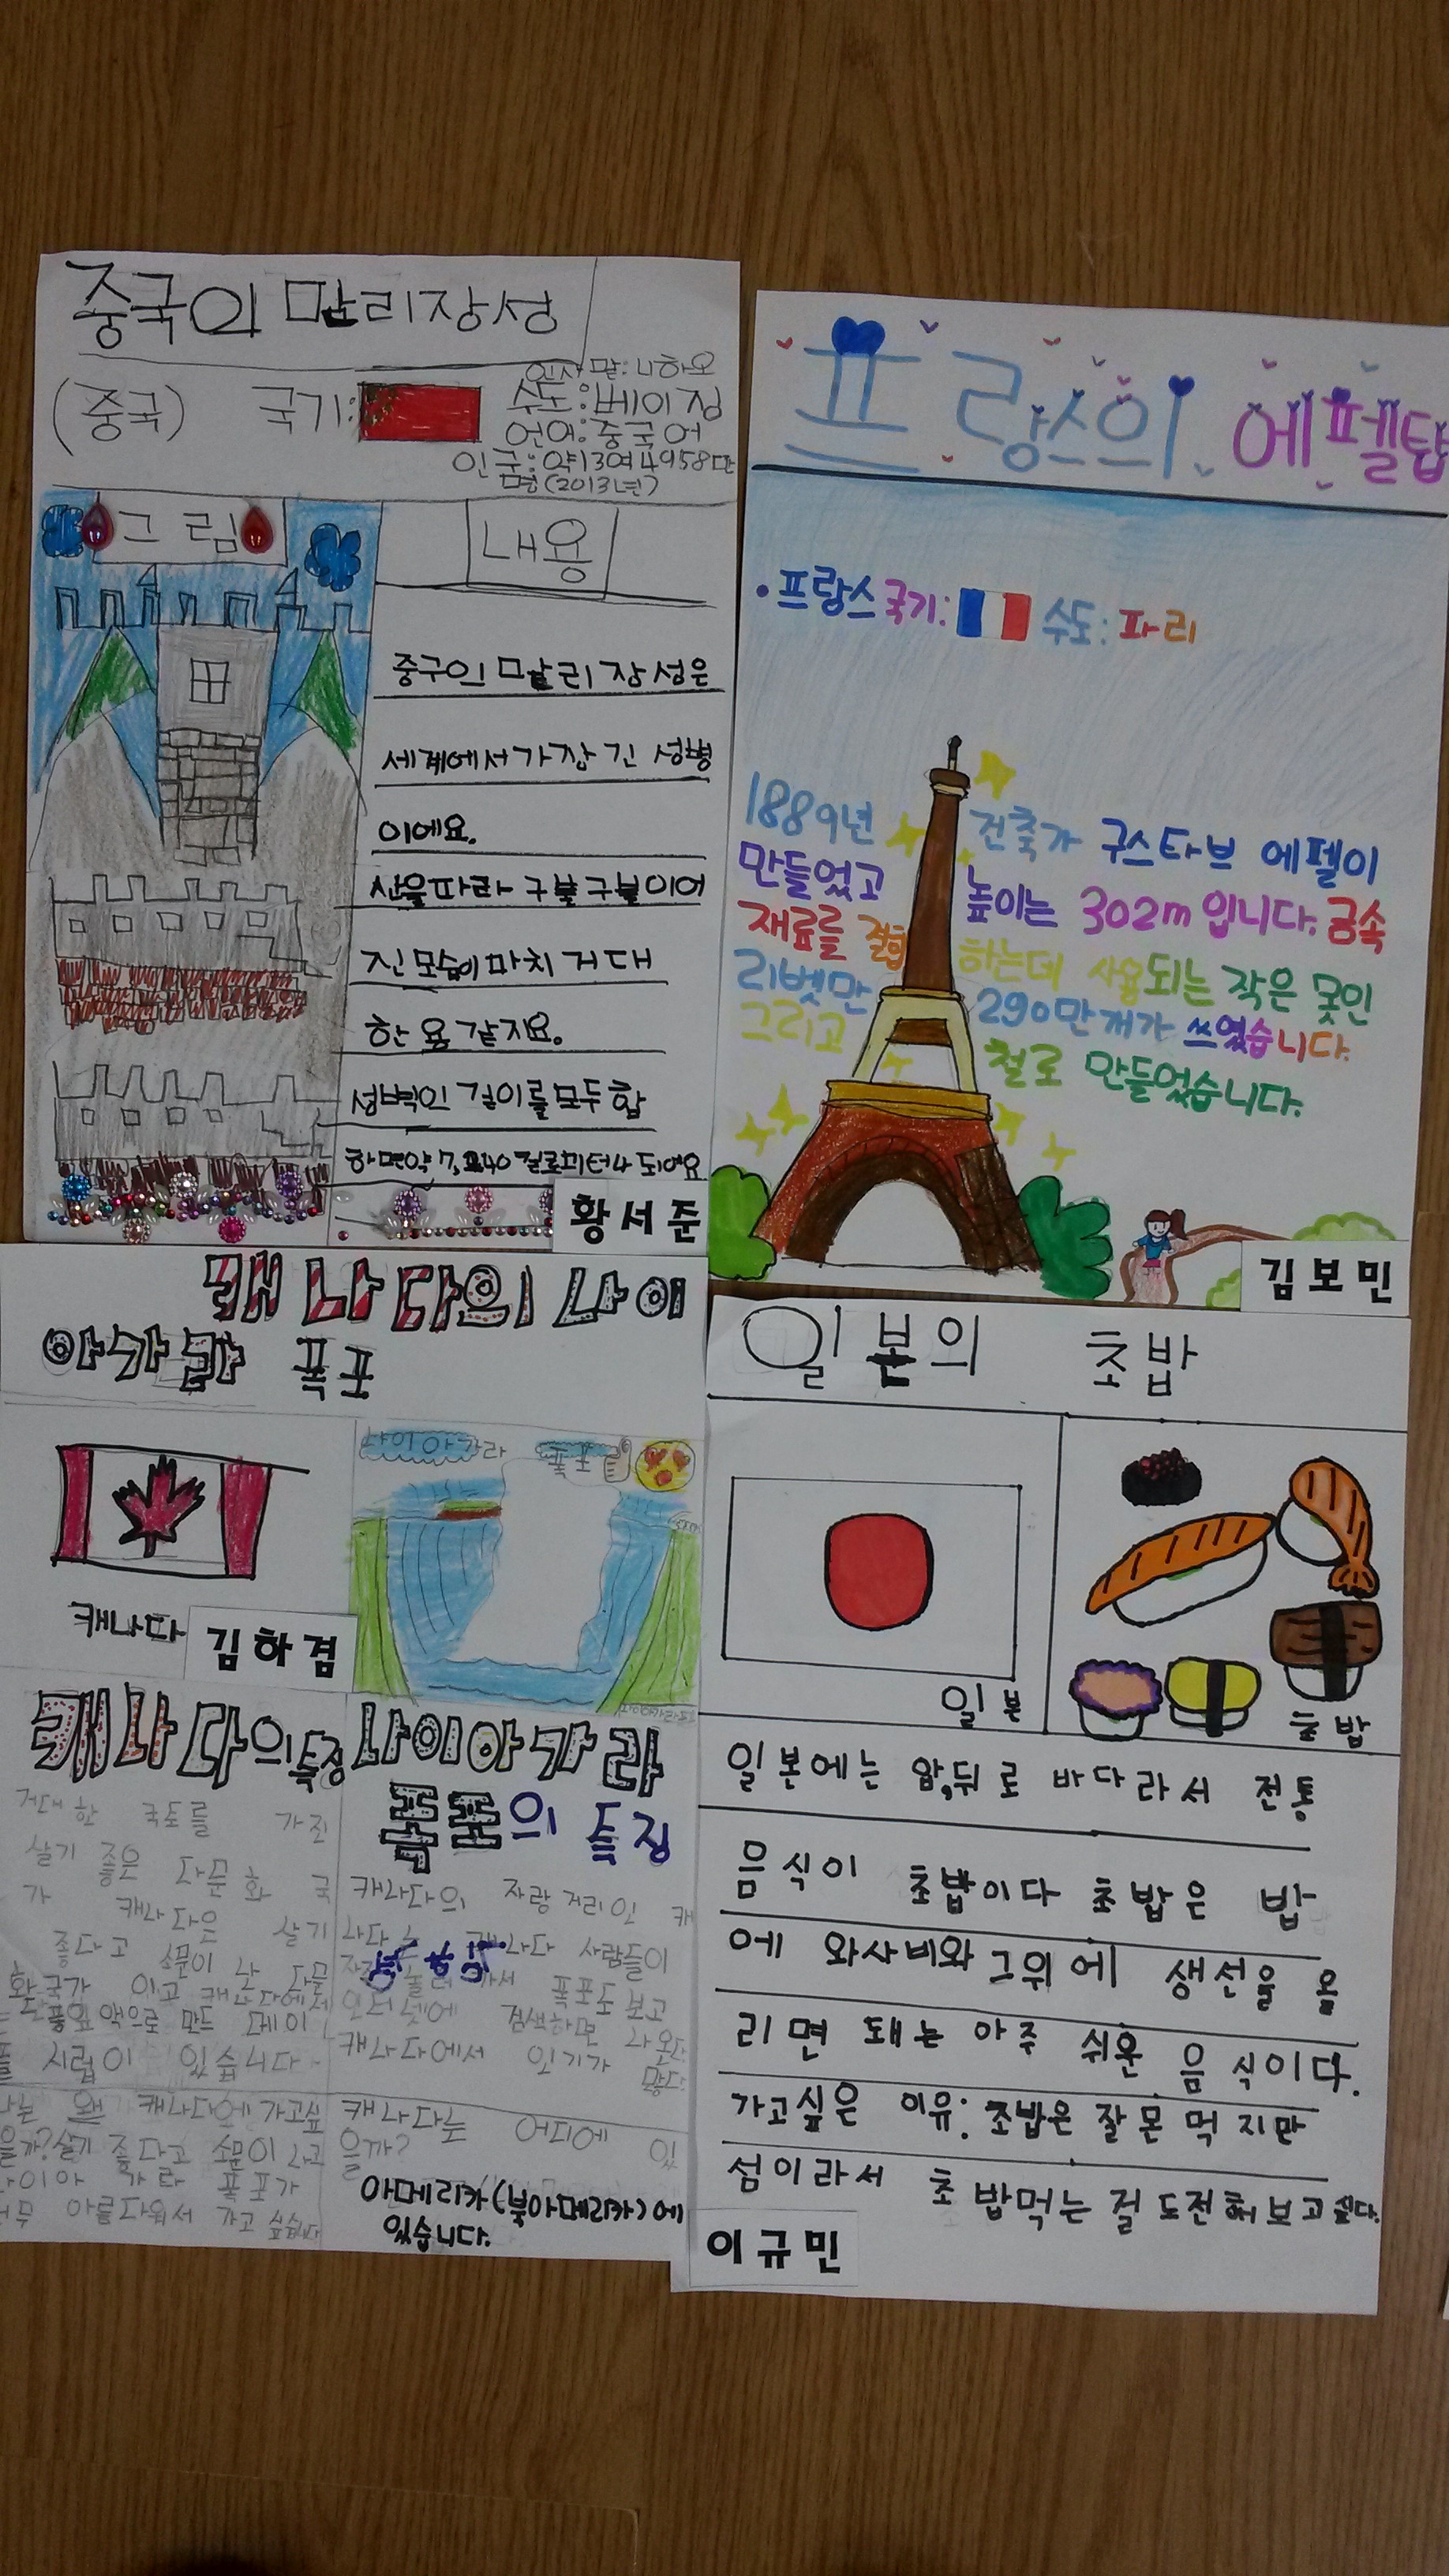 중국의 만리장성
(중국) 국기:
인사말: 니하오
수도: 베이징
언어: 중국어
인구: 약13억4958만
명(2013년)
그림
내용
중구의 만리장성은
세계에서 가장 긴 성벽
이에요.
산을따라 구불구불이어
진모습이 마치 거대
한 용 같지요.
성벽의 길이를 모두 합
하면 약 7,240 킬로미터나 되어요
황서준
프랑스의 에펠탑
• 프랑스 국기: 수도: 파리
1889년 건축가 구스타브 에펠이
만들었고 높이는 302m 입니다. 금속
재료를 결합 하는데 사용되는 작은 못인
리벳만 290만개가 쓰였습니다.
그리고 철로 만들었습니다.
김보민
캐나다의 나이
아가라 폭포
나이아가라 폭포
캐나다
김하겸
캐나다의 특징
거대한 국토를 가진
살기 좋은 다문화 국
가 캐나다은 살기
좋다고 소문이 난 다문
화국가 이고 캐나다에서
단풍잎 액으로 만드 메이
플 시럽이 있습니다.
나는 왜 캐나다에 가고싶
을까? 살기 좋다고 소문이 나고
나이아 가라 폭포가
너무 아름다워서 가고 싶습니다
나이아가라
폭포의 특징
캐나다의 자랑거리인 캐
나다는 캐나다 사람들이
놀러 가서 폭포도 보고
인터넷에 검색하면 나온다
캐나다에서 인기가 많다.
캐나다는 어디에 있
을까?
아메리카(북아메리카)에
있습니다.
일본의 초밥
일본
초밥
일본에는 앞,뒤로 바다라서 전통
음식이 초밥이다 초밥은 밥
에 와사비와 그위에 생선을 올
리면 돼는 아주 쉬운 음식이다.
가고싶은 이유: 초밥은 잘 못 먹지만
섬이라서 초밥먹는 걸 도전해보고싶다.
이규민